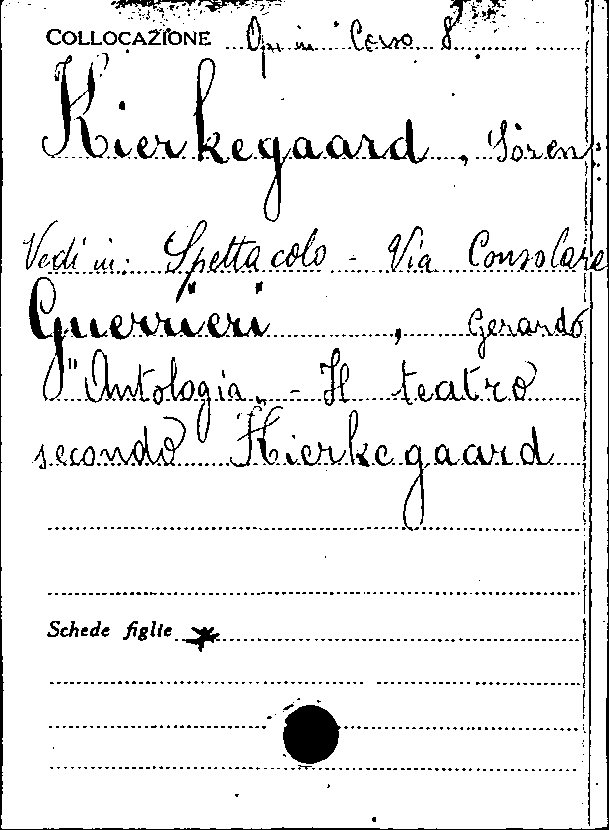 COLLOCAZIONE Op. in Corso 8
Kierkegaard, Sören
Vedi in: Spettacolo - Via Consolare
Guerrieri, Gerardo
"Antologia" - Il teatro
secondo Kierkegaard
Schede figlie